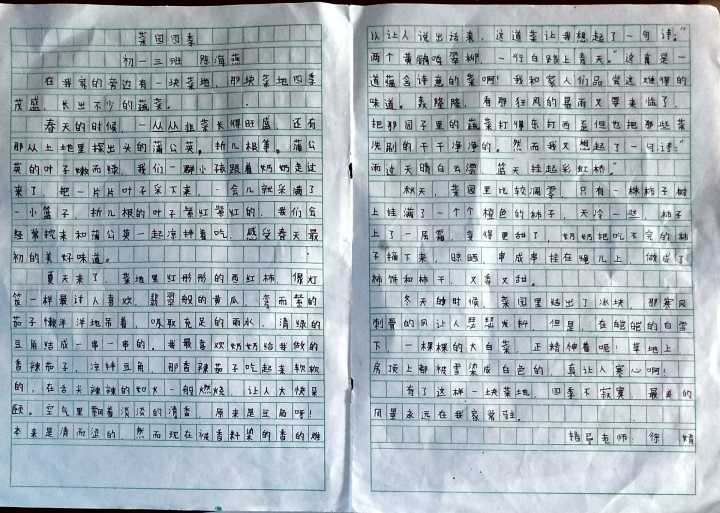 菜园四季
初一三班 陈海蕴
在我家的旁边有一块菜地，那块菜地四季
茂盛，长出不少的蔬菜。
春天的时候，一丛丛韭菜长得旺盛，还有
那从土地里探出头的蒲公英。折儿根等。蒲公
英的叶子嫩而绿，我们一群小孩跟着奶奶走过
来了，把一片片叶子采下来，一会儿就采满了
一小篮子，折儿根的叶子紫红紫红的，我们会
经常挖来和蒲公英一起凉拌着吃，感受春天最
初的美好味道。
夏天来了，菜地里红彤彤的西红柿，像灯
笼一样最讨人喜欢，翡翠般的黄瓜，弯而紫的
茄子懒洋洋地吊着，吸取充足的雨水，清绿的
豆角结成一串一串的，我最喜欢奶奶给我做的
香辣茄子，凉拌豆角，那香辣茄子吃起来软软
的，在舌尖辣辣的如火一般燃烧，让人大快朵
颐。空气里飘着淡淡的清香，原来是豆角呀！
本来是清而涩的，然而现在被香料染的香的难
以让人说出话来，这道菜让我想起了一句诗。“
两个黄鹂鸣翠柳，一行白鹭上青天。”这真是一
道蕴含诗意的菜啊！我和家人们品尝这难得的
味道。轰隆隆，有那狂风的暴雨又要来临了，
把那园子里的蔬菜打得东打西歪但也把那些菜
洗刷的干干净净的。然而我又想起了一句诗：“
雨过天晴白云漂，蓝天挂起彩虹桥。”
秋天，菜园里比较凋零，只有一棵柿子树
上挂满了一个个橙色的柿子，天冷一些，柿子
上了一层霜，变得更甜了，奶奶把吃不完的柿
子摘下来，晾晒，串成串挂在绳儿上，做成了
柿饼和柿干，又香又甜。
冬天的时候，菜园里结出了冰块，那寒风
刺骨的风让人瑟瑟发抖，但是，在皑皑的白雪
下，一棵棵的大白菜，正精神着呢！草地上，
房顶上都被雪染成白色的，真让人赏心啊！
有了这样一块菜地，四季不寂寞，最美的
风景永远在我家常驻。
指导老师：徐 婧